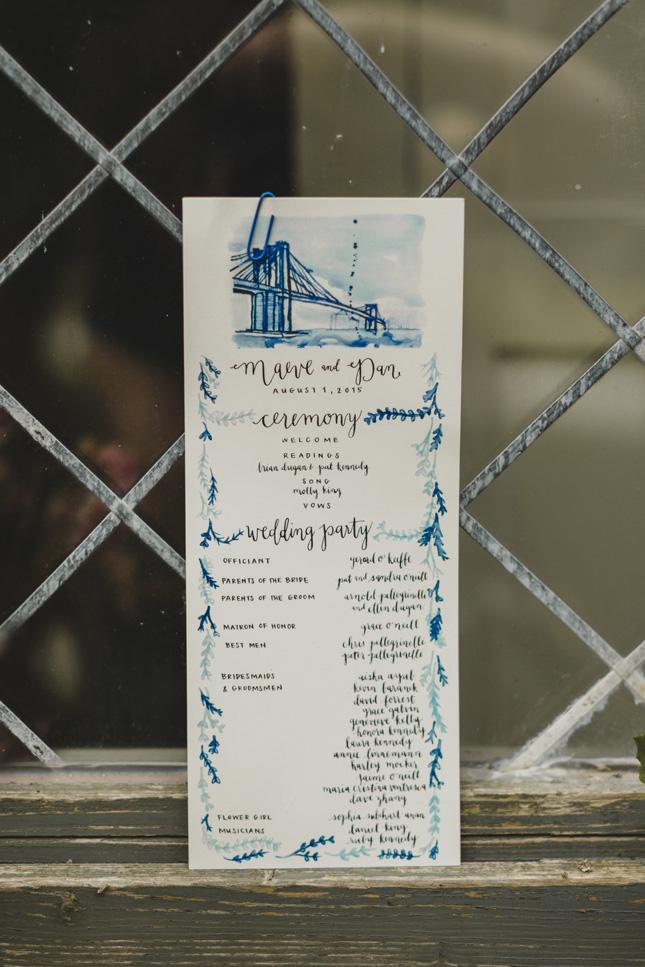 Maeve and Dan
AUGUST 1, 2015
ceremony
WELCOME
READINGS
brian dugan & pat kennedy
SONG
molly king
VOWS
wedding party
OFFICIANT gerard o'keeffe
PARENTS OF THE BRIDE pat and sandra o'neill
PARENTS OF THE GROOM arnold pellegrinelli
and ellen dugan
MATRON OF HONOR grace o'neill
BEST MEN chris pellegrinelli
peter pellegrinelli
BRIDESMAIDS aisha ayal
& GROOMSMEN kevin
david forrest
grace galvin
genevieve kelly
honora kennedy
laura kennedy
annie
harley
jaime o'neill
maria cristina
dave zhang
FLOWER GIRL sophia
MUSICIANS daniel king
ruby kennedy